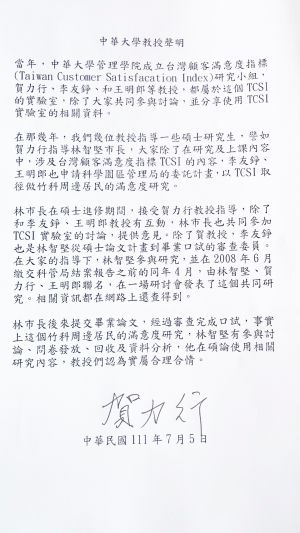 中華大學教授聲明
當年，中華大學管理學院成立台灣顧客滿意度指標
(Taiwan Customer Satisfacation Index)研究小組，
賀力行、李友錚、和王明郎等教授，都屬於這個 TCSI
的實驗室，除了大家共同參與討論，並分享使用 TCSI
實驗室的相關資料。
在那幾年，我們幾位教授指導一些碩士研究生，譬如
賀力行指導林智堅市長，大家除了在研究及上課內容
中，涉及台灣顧客滿意度指標 TCSI 的內容，李友錚、
王明郎也申請科學園區管理局的委託計畫，以 TCSI 取
徑做竹科周邊居民的滿意度研究。
林市長在碩士進修期間，接受賀力行教授指導，除了
和李友錚、王明郎教授有互動，林市長也共同參加
TCSI 實驗室的討論，提供意見。除了賀教授，李友錚
也是林智堅從碩士論文計劃到畢業口試的審查委員。
在大家的指導下，林智堅參與研究，並在 2008 年 6 月
繳交科管局結案報告之前的同年 4 月，由林智堅、賀
力行、王明郎聯名，在一場研討會發表了這個共同研
究。相關資訊都在網路上還查得到。
林市長後來提交畢業論文，經過審查完成口試，事實
上這個竹科周邊居民的滿意度研究，林智堅有參與討
論、問卷發放、回收及資料分析，他在碩論使用相關
研究內容，教授們認為實屬合理合情。
賀力行
中華民國 111 年 7 月 5 日